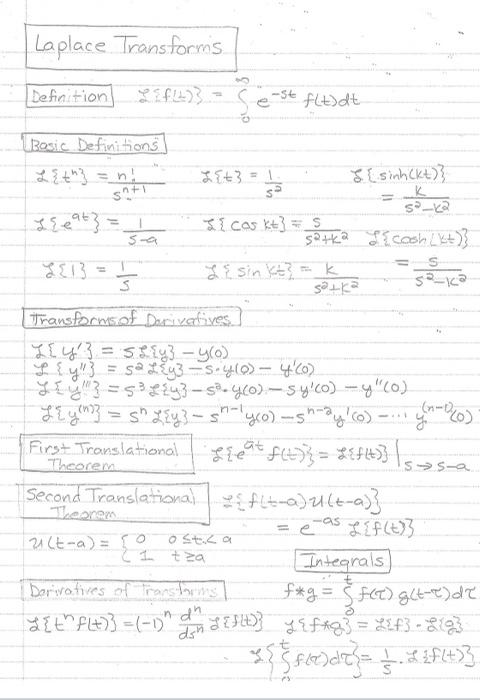 Laplace Transforms
Definition ℒ{f(t)} = ∫₀^∞ e^{-st} f(t)dt
Basic Definitions
ℒ{tⁿ} = n!/s^{n+1} ℒ{t} = 1/s² ℒ{sinh(kt)} = k/(s²-k²)
ℒ{e^{at}} = 1/(s-a) ℒ{cos kt} = s/(s²+k²) ℒ{cosh(kt)} = s/(s²-k²)
ℒ{1} = 1/s ℒ{sin kt} = k/(s²+k²)
Transforms of Derivatives
ℒ{y'} = sℒ{y} - y(0)
ℒ{y''} = s²ℒ{y} - s·y(0) - y'(0)
ℒ{y'''} = s³ℒ{y} - s²·y(0) - sy'(0) - y''(0)
ℒ{y^{(n)}} = sⁿℒ{y} - s^{n-1}y(0) - s^{n-2}y'(0) - ··· y^{(n-1)}(0)
First Translational
Theorem
ℒ{e^{at} f(t)} = ℒ{f(t)}|_{s→s-a}
Second Translational
Theorem
ℒ{f(t-a)u(t-a)}
= e^{-as} ℒ{f(t)}
u(t-a) = { 0 0≤t<a
1 t≥a
Integrals
f*g = ∫₀^t f(τ) g(t-τ)dτ
Derivatives of Transforms
ℒ{tⁿf(t)} = (-1)ⁿ dⁿ/dsⁿ ℒ{f(t)} ℒ{f*g} = ℒ{f}·ℒ{g}
ℒ{∫₀^t f(τ)dτ} = 1/s · ℒ{f(t)}